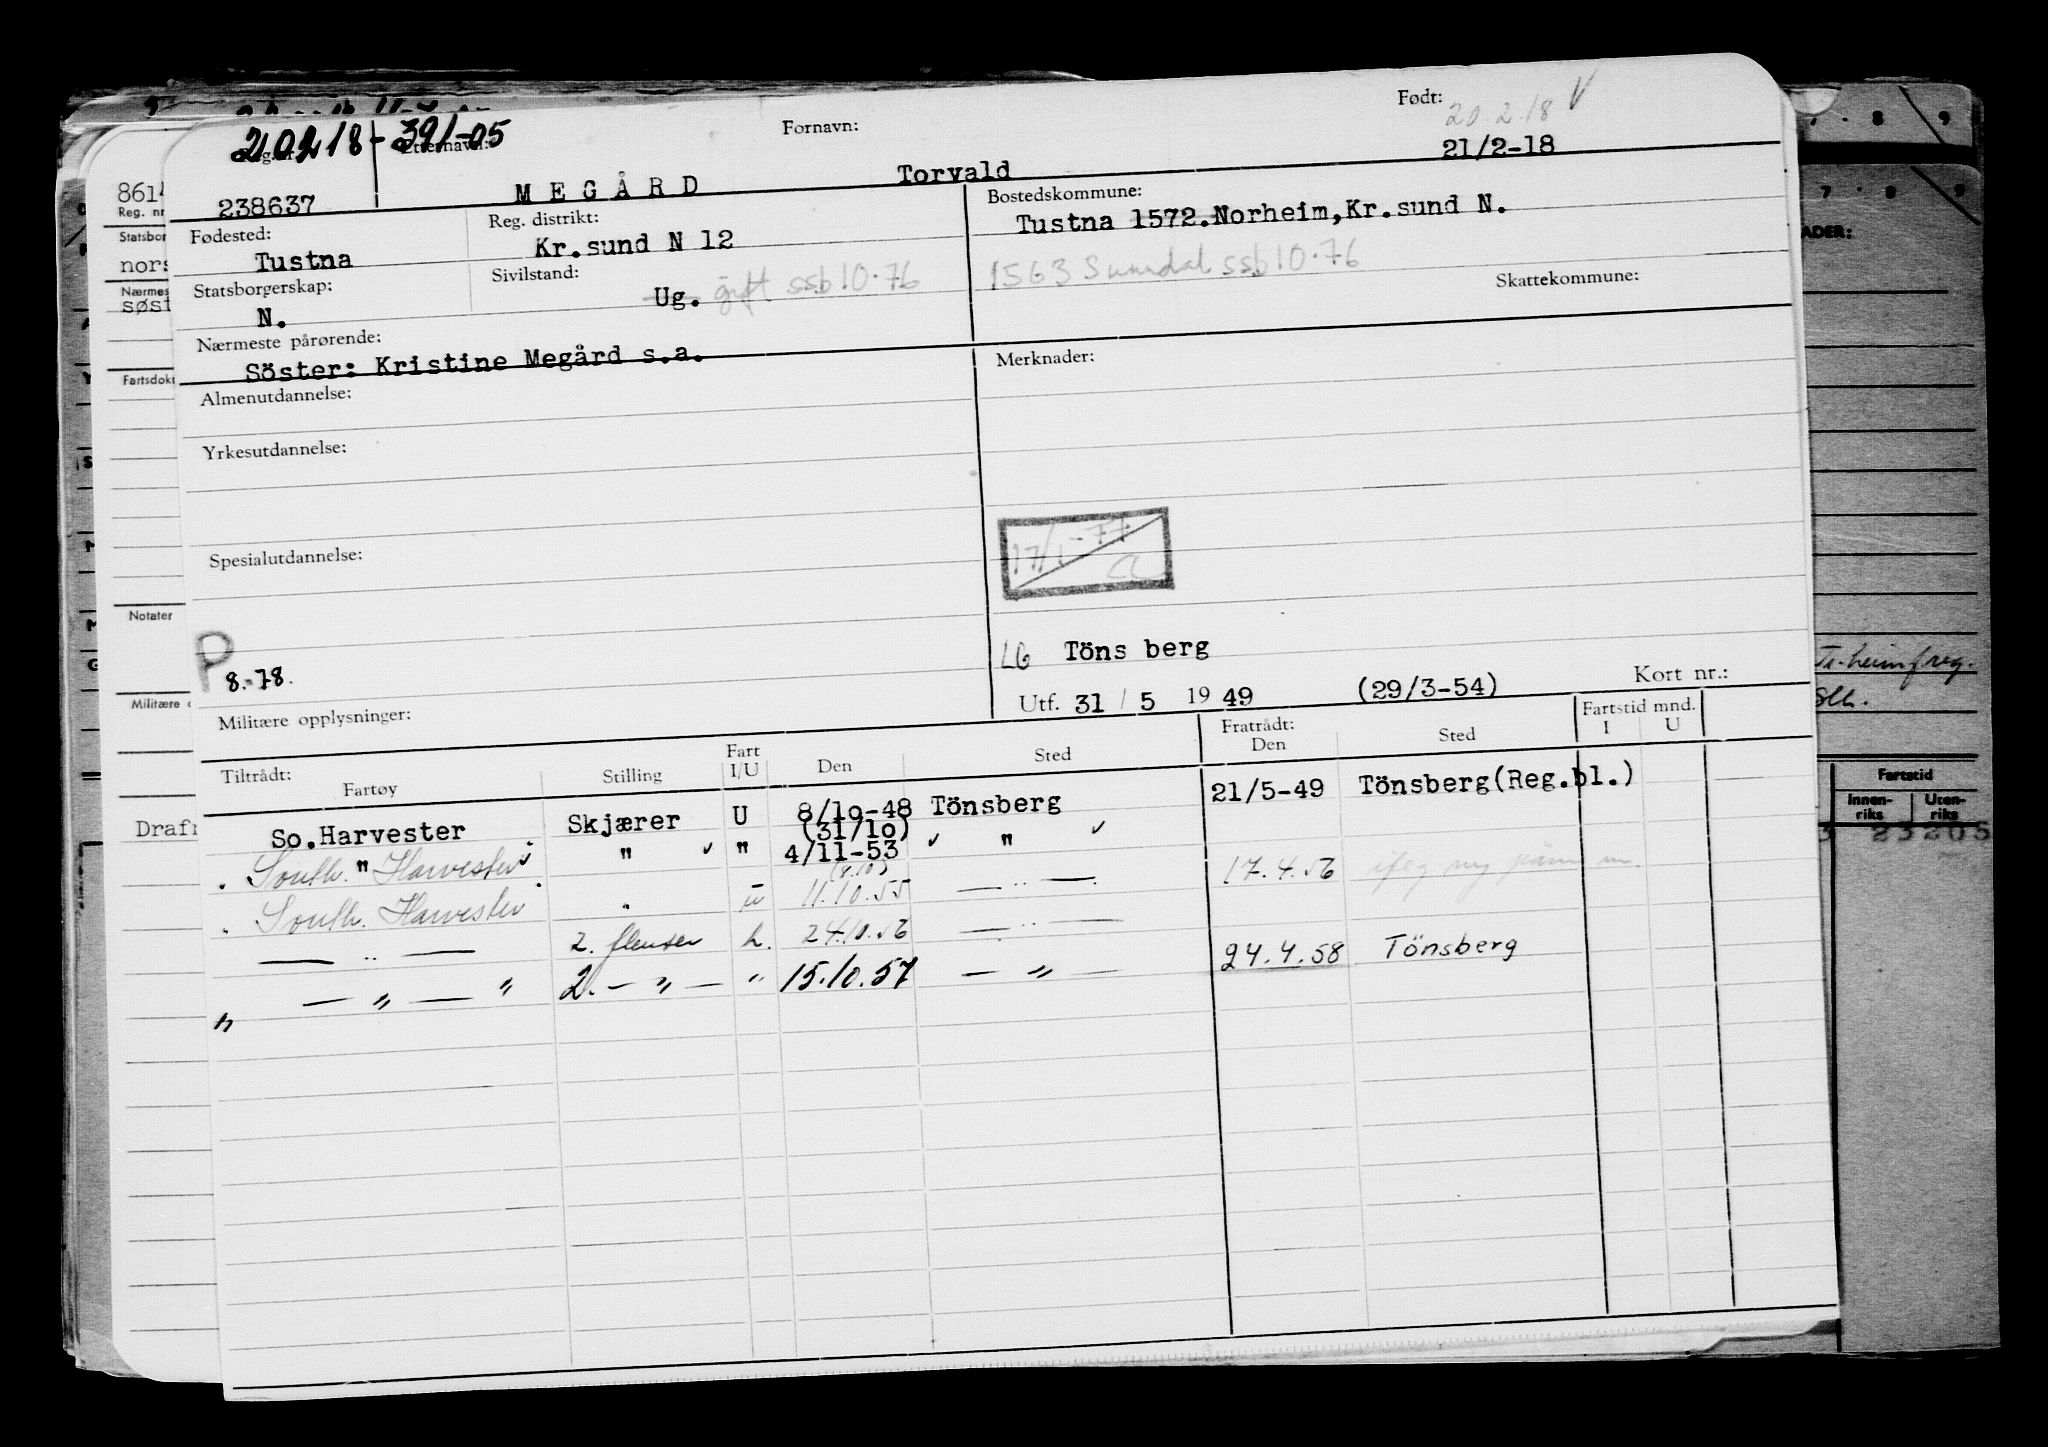 20218-391-05
Reg. nr. Etternavn: Fornavn: Født:
20.2.18 V
238637 MEGÅRD Torvald 21/2-18
Fødested: Reg. distrikt: Bostedskommune:
Tustna Kr.sund N 12 Tustna 1572.Norheim,Kr.sund N.
Statsborgerskap: Sivilstand: 1563 Sunndal ssb 10.76 Skattekommune:
N. Ug. gift ssb 10.76
Nærmeste pårørende: Merknader:
Söster: Kristine Megård s.a.
Almenutdannelse:
Yrkesutdannelse:
17/1-77
CL
Spesialutdannelse:
P
8.-78.
LG Töns berg
Utf. 31 / 5 19 49 (29/3-54) Kort nr.:
Militære opplysninger:
Tiltrådt: Fart Fratrådt: Fartstid mnd.
Fartøy Stilling I/U Den Sted Den Sted I U
So.Harvester Skjærer U 8/10-48 Tönsberg 21/5-49 Tönsberg(Reg.bl.)
(31/10)
" " " 4/11-53 "
South. Harvester
(8.10)
South. Harvester " u 11.10.55 — " — 17.4.56
— " — 2. flenser u. 24.10.56 — " —
— " — " 2. — " — " 15.10.57 — " — 24.4.58 Tönsberg
"
Reg. nr
Statsbor
nors
Nærmes
søst
Fartsdok
Notater
Militære
8 9
7 8 9
ADER:
Fartstid
Innen-
riks
Uten-
riks